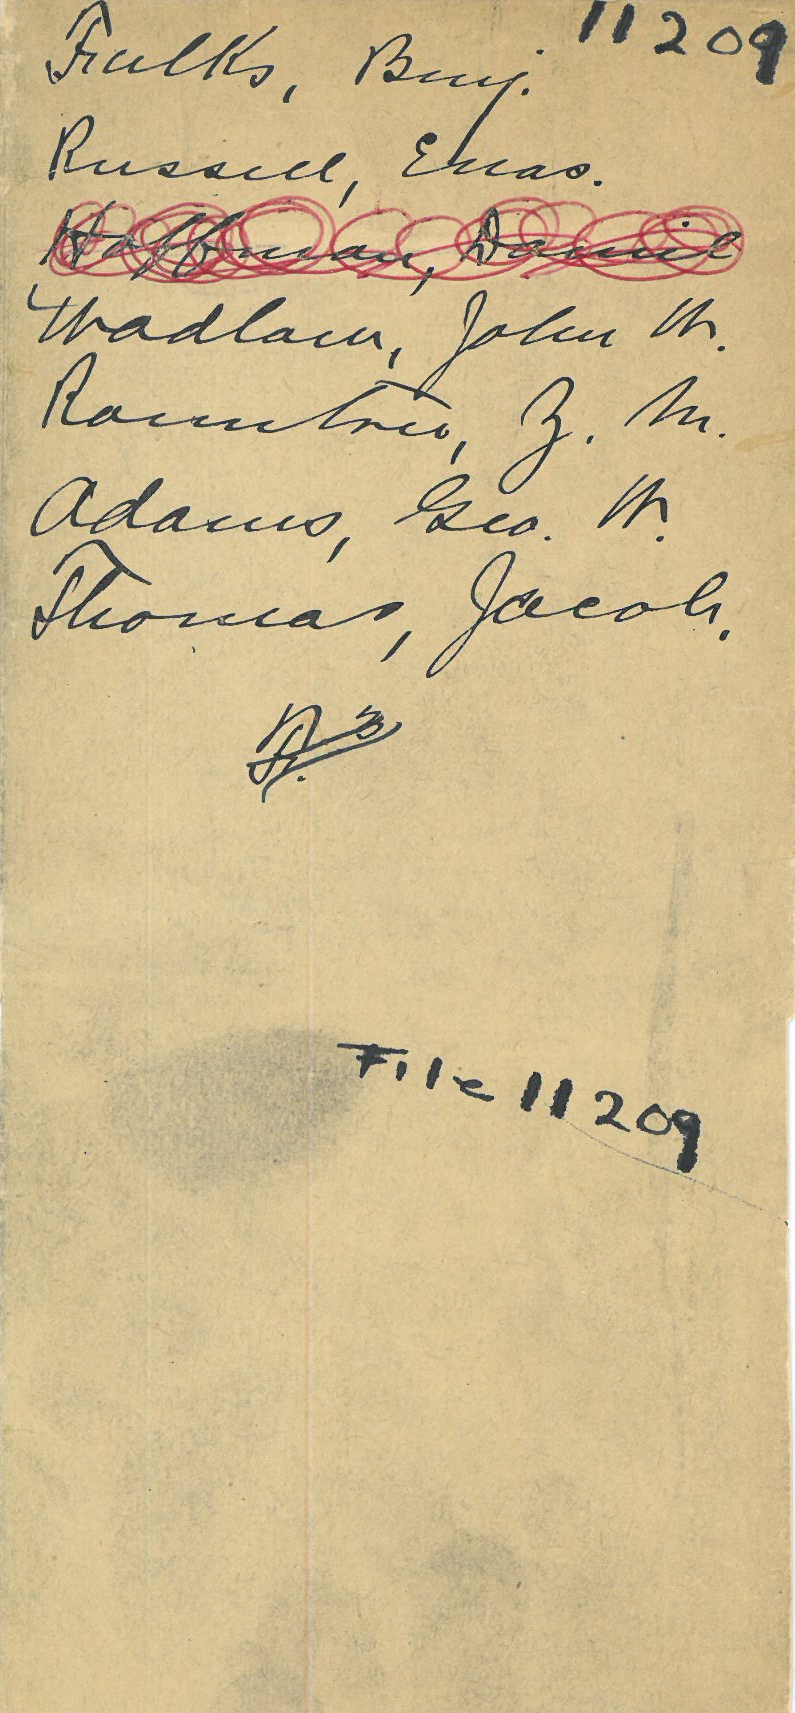 11209
Fulks, Benj.
Russell, Enas.
Hoffman, Daniel
Wadlow, John W.
Rountree, Z. M.
Adams, Geo. W.
Thomas, Jacob.
File 11209